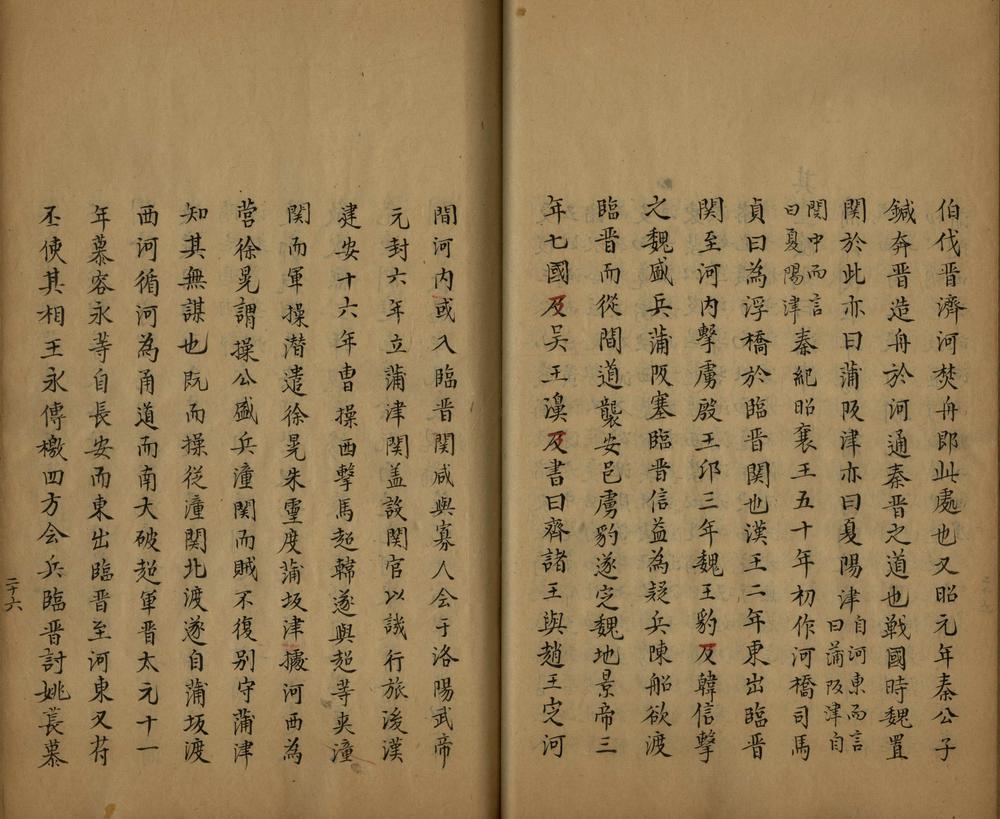 伯伐晋濟河焚舟即此處也又昭元年秦公子
鍼奔晋造舟於河通秦晋之道也戰國時魏置
関於此亦曰蒲阪津亦曰夏陽津自河東而言曰蒲阪津自
関中而言曰夏陽津秦紀昭襄王五十年初作河橋司馬
貞曰為浮橋於臨晋関也漢王二年東出臨晋
関至河内擊虜殷王卬三年魏王豹及韓信擊
之魏盛兵蒲阪塞臨晋信益為疑兵陳船欲渡
臨晋而從間道襲安邑虜豹遂定魏地景帝三
年七國及吴王濞及書曰齊諸王與趙王定河
間河内或入臨晋関或與寡人会于洛陽武帝
元封六年立蒲津関盖設関官以譏行旅後漢
建安十六年曹操西擊馬超韓遂與超等夹潼
関而軍操潜遣徐晃朱靈度蒲坂津據河西為
营徐晃謂操公盛兵潼関而賊不復别守蒲津
知其無謀也既而操從潼関北渡遂自蒲坂渡
西河循河為甬道而南大破超軍晋太元十一
年慕容永等自長安而東出臨晋至河東又苻
丕使其相王永傳檄四方会兵臨晋討姚萇慕
二十六